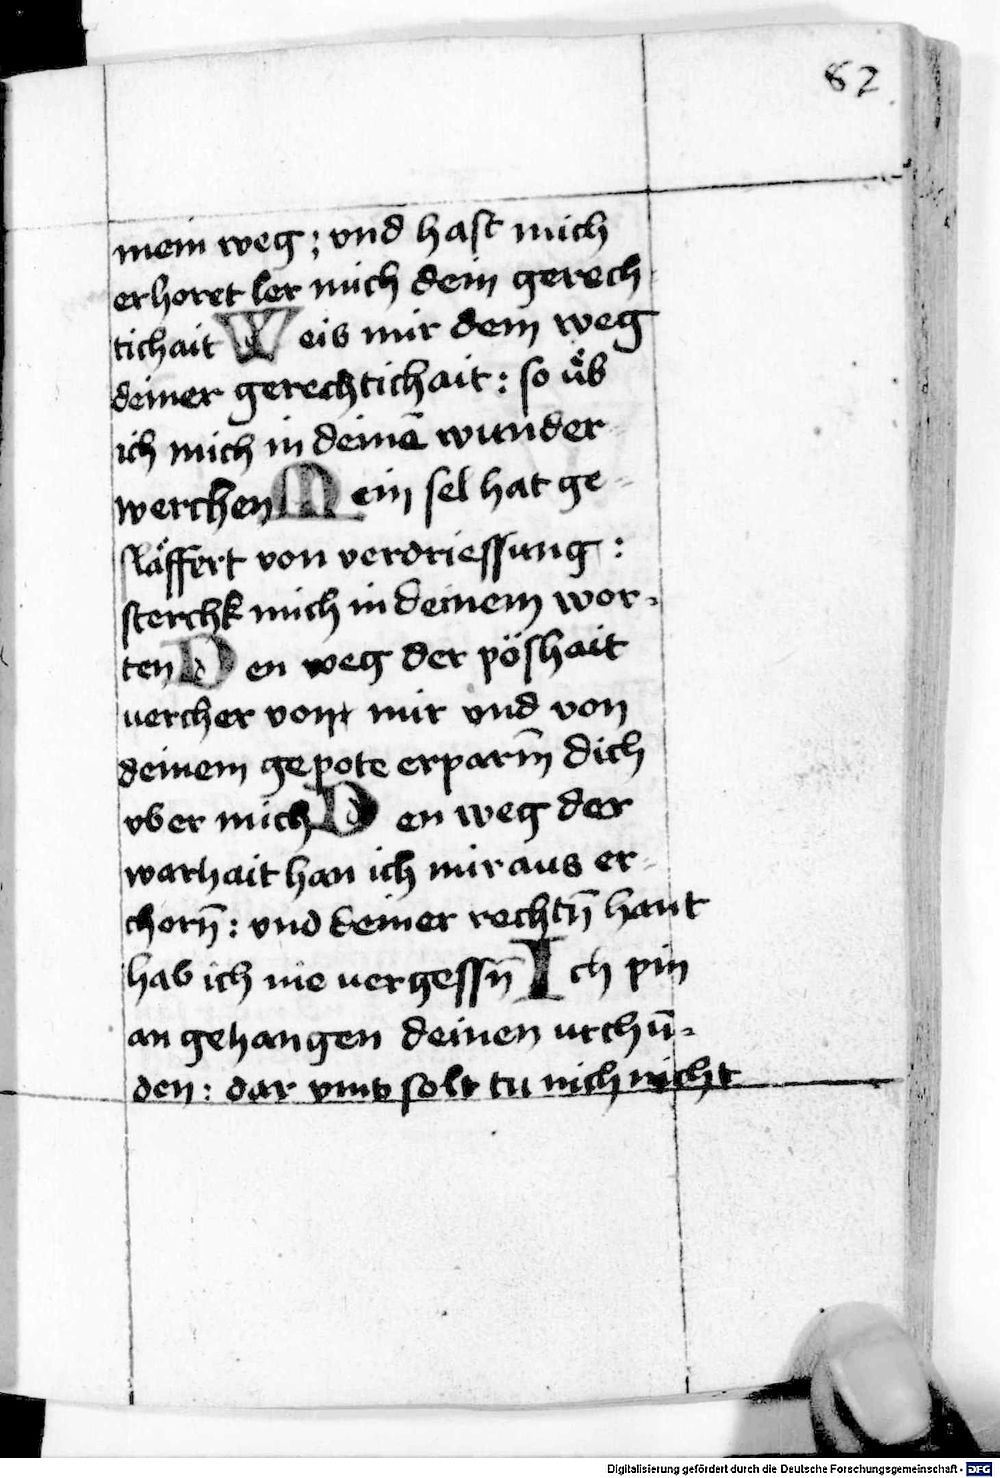 62
mein weg ; vnd hast mich
erhoret ler mich dein gerech
tichait Weis mir dem weg
deiner gerechtichait : so ůb
ich mich in deinē wunder
werchen Mein sel hat ge-
släffert von verdriessung :
sterchk mich in deinem wor-
ten Den weg der pöshait
vercher von mir vnd von
deinem gepote erparm̄ dich
vber mich Den weg der
warhait han ich mir aus er-
chorn̄ : vnd deiner rechtn̄ haut
hab ich nie vergessn̄ Ich pin
an gehangen deinen vrchū-
den : dar vmb solt tu mich nicht
Digitalisierung gefördert durch die Deutsche Forschungsgemeinschaft - DFG